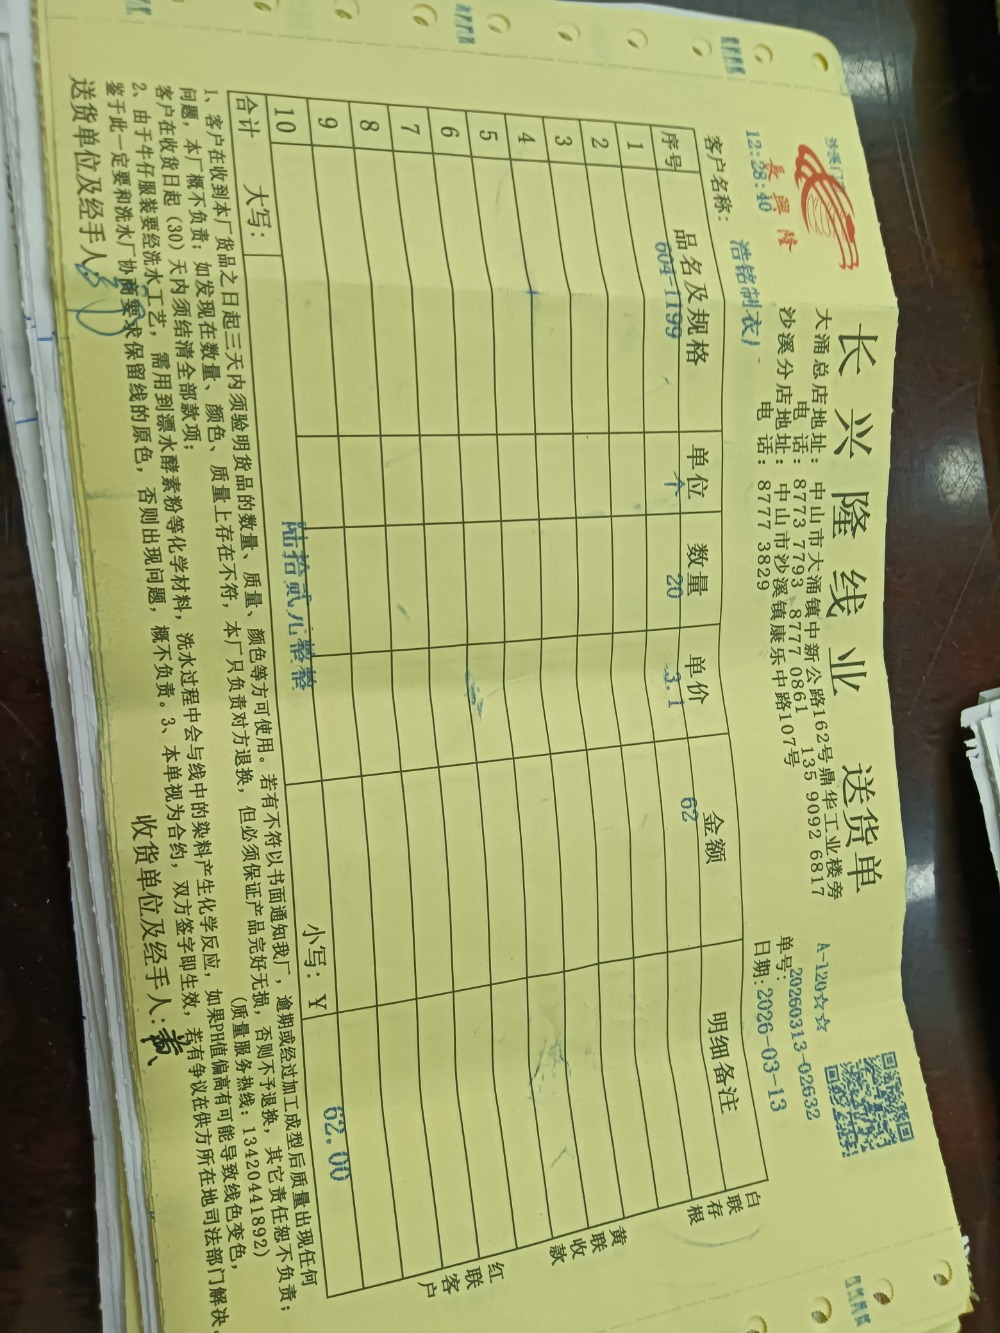 长兴隆线业 送货单
長興隆
沙溪门
12:28:40
大涌总店地址：中山市大涌镇中新公路162号鼎华工业楼旁
电话：8773 7793 8777 0861 135 9092 6817
沙溪分店地址：中山市沙溪镇康乐中路107号
电话：8777 3829
A-120☆☆
单号：20260313-02632
日期：2026-03-13
客户名称：浩铭制衣厂
序号 品名及规格 单位 数量 单价 金额 明细备注
1 604-1199 个 20 3.1 62
2
3
4
5
6
7
8
9
10
合计 大写：陆拾贰元整整 小写：Y 62.00
白联存根
黄联收款
红联客户
1、客户在收到本厂货品之日起三天内须验明货品的数量、质量、颜色等方可使用。若有不符以书面通知我厂，逾期或经过加工成型后质量出现任何
问题，本厂概不负责；如发现在数量、颜色、质量上存在不符，本厂只负责对方退换，但必须保证产品完好无损，否则不予退换，其它责任恕不负责；
客户在收货日起（30）天内须结清全部款项； （质量服务热线：13420441892）
2、由于牛仔服装要经洗水工艺，需用到漂水酵素粉等化学材料，洗水过程中会与线中的染料产生化学反应，如果PH值偏高有可能导致线色变色，
鉴于此一定要和洗水厂协商要求保留线的原色，否则出现问题，概不负责。3、本单视为合约，双方签字即生效，若有争议在供方所在地司法部门解决。
送货单位及经手人： 收货单位及经手人：